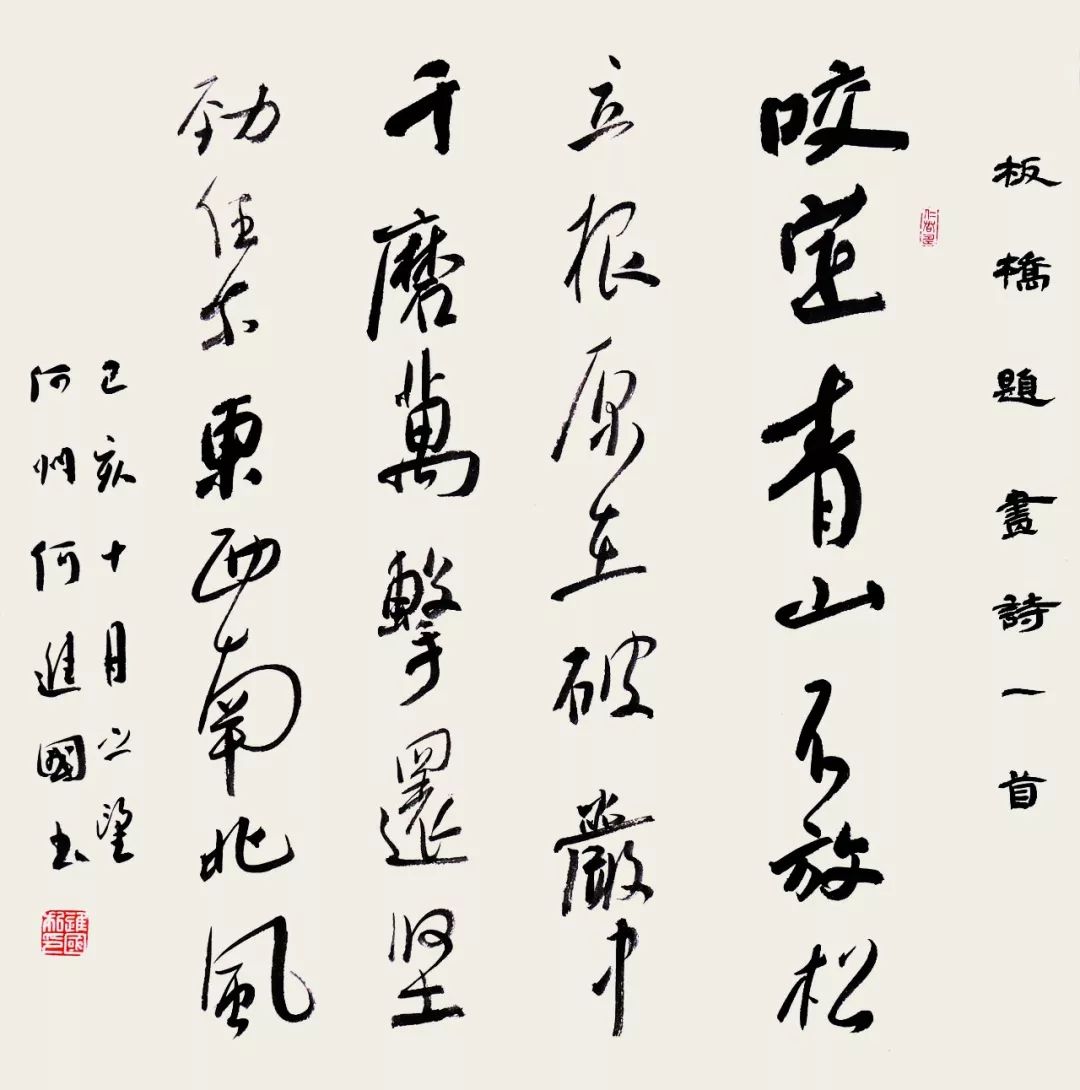 板橋題畫詩一首
咬定青山不放松
立根原在破嚴中
千磨萬擊還坚
劲任尔東西南北風
己亥十月之望
河州何進國书